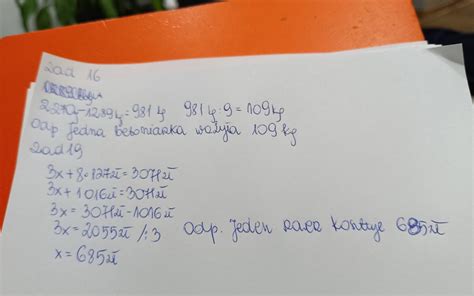 Zad 16
2270kg-1289kg=981kg 981kg:9=109kg
Odp. Jedna betoniarka waży 109 kg
Zad 19
3x+8·127zł=3071zł
3x+1016zł=3071zł
3x=3071zł-1016zł
3x=2055zł /:3 odp. Jeden rower kosztuje 685zł
x=685zł